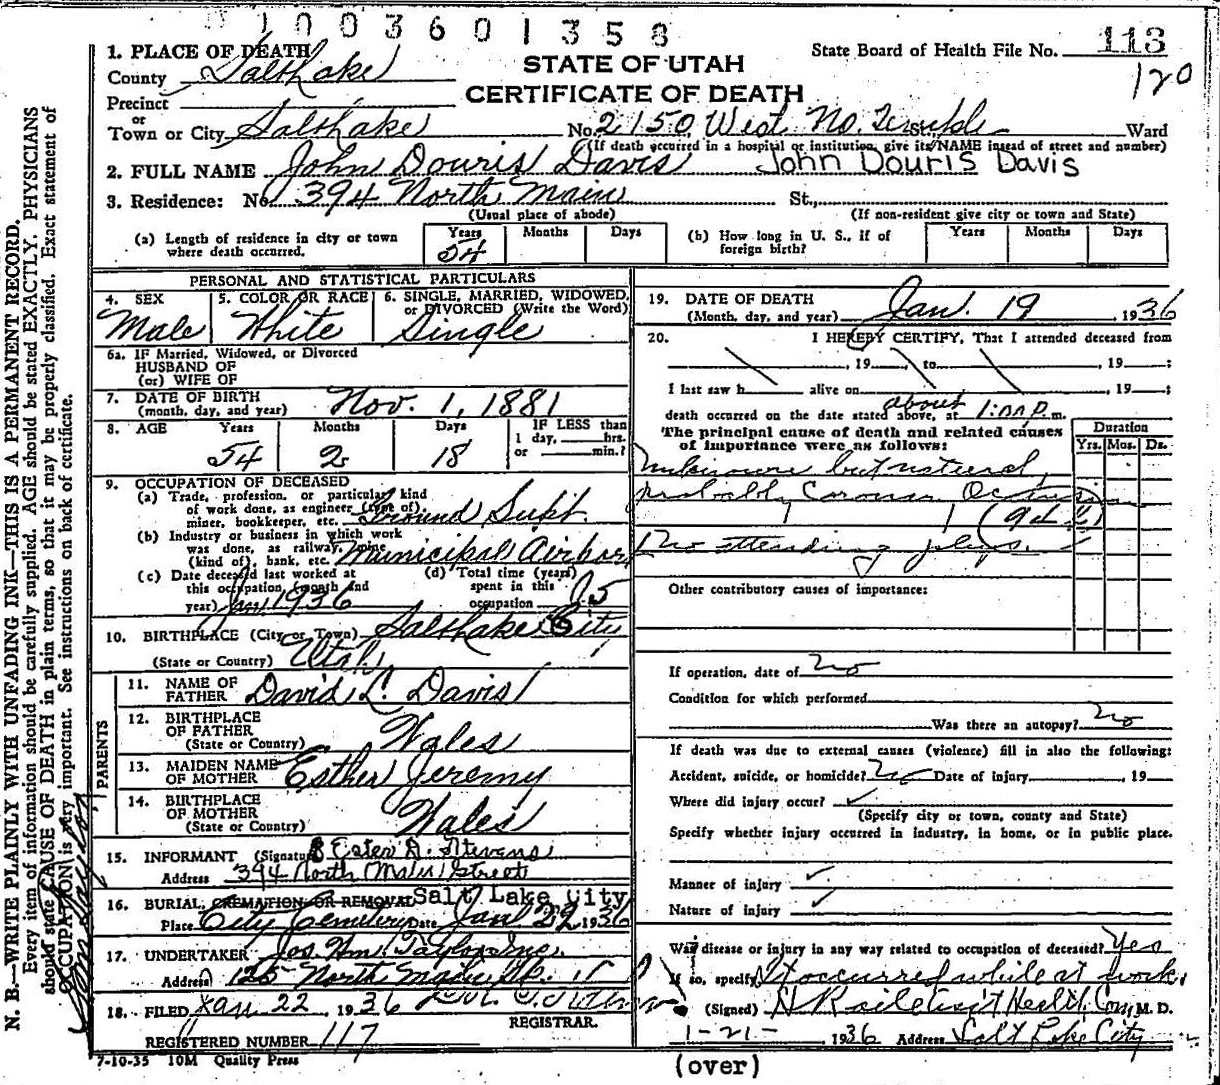 1003601358
1. PLACE OF DEATH
State Board of Health File No. 113
120
County Salt Lake
STATE OF UTAH
CERTIFICATE OF DEATH
Precinct
or
Town or City Salt Lake No. 2150 West No. Temple St. Ward
(If death occurred in a hospital or institution, give its NAME instead of street and number)
2. FULL NAME John Douris Davis John Douris Davis
3. Residence: No. 394 North Main St.,
(Usual place of abode) (If non-resident give city or town and State)
(a) Length of residence in city or town where death occurred. Years 54 Months Days
(b) How long in U. S., if of foreign birth? Years Months Days
PERSONAL AND STATISTICAL PARTICULARS
4. SEX Male
5. COLOR OR RACE White
6. SINGLE, MARRIED, WIDOWED, or DIVORCED (Write the Word) Single
6a. IF Married, Widowed, or Divorced
HUSBAND OF
(or) WIFE OF
7. DATE OF BIRTH
(month, day, and year) Nov. 1, 1881
8. AGE Years 54 Months 2 Days 18 IF LESS than 1 day, hrs. or min.?
9. OCCUPATION OF DECEASED
(a) Trade, profession, or particular kind
of work done, as engineer (type of),
miner, bookkeeper, etc. Ground Supt.
(b) Industry or business in which work
was done, as railway, mine
(kind of), bank, etc. Municipal Airport
(c) Date deceased last worked at
this occupation (month and
year) Jan 1936
(d) Total time (years)
spent in this
occupation 5
10. BIRTHPLACE (City or Town) Salt Lake City
(State or Country) Utah
PARENTS
11. NAME OF
FATHER David L. Davis
12. BIRTHPLACE
OF FATHER
(State or Country) Wales
13. MAIDEN NAME
OF MOTHER Esther Jeremy
14. BIRTHPLACE
OF MOTHER
(State or Country) Wales
15. INFORMANT (Signature) Ester D. Stevens
Address 394 North Main Street
16. BURIAL, CREMATION OR REMOVAL Salt Lake City
Place City Cemetery Date Jan 22 1936
17. UNDERTAKER Jos. Wm. Taylor Inc.
Address 125 North Main St.
18. FILED Jan 22, 1936
REGISTRAR.
REGISTERED NUMBER 117
7-10-35 10M Quality Press
19. DATE OF DEATH
(Month, day, and year) Jan. 19, 1936
20. I HEREBY CERTIFY, That I attended deceased from
, 19 , to , 19 ;
I last saw h alive on , 19 ;
death occurred on the date stated above, at about 1:00 P.m.
The principal cause of death and related causes
of importance were as follows:
Duration
Yrs. Mos. Ds.
Unknown but natural,
probably
No attending phys.
Other contributory causes of importance:
If operation, date of no
Condition for which performed
Was there an autopsy? no
If death was due to external causes (violence) fill in also the following:
Accident, suicide, or homicide? no Date of injury , 19
Where did injury occur? ✓
(Specify city or town, county and State)
Specify whether injury occurred in industry, in home, or in public place.
Manner of injury ✓
Nature of injury ✓
Was disease or injury in any way related to occupation of deceased? Yes
If so, specify It occurred while at work.
(Signed) Health Com, M. D.
1-21- 1936 Address Salt Lake City
(over)
N. B.—WRITE PLAINLY WITH UNFADING INK—THIS IS A PERMANENT RECORD.
Every item of information should be carefully supplied. AGE should be stated EXACTLY. PHYSICIANS
should state CAUSE OF DEATH in plain terms, so that it may be properly classified. Exact statement of
OCCUPATION is very important. See instructions on back of certificate.